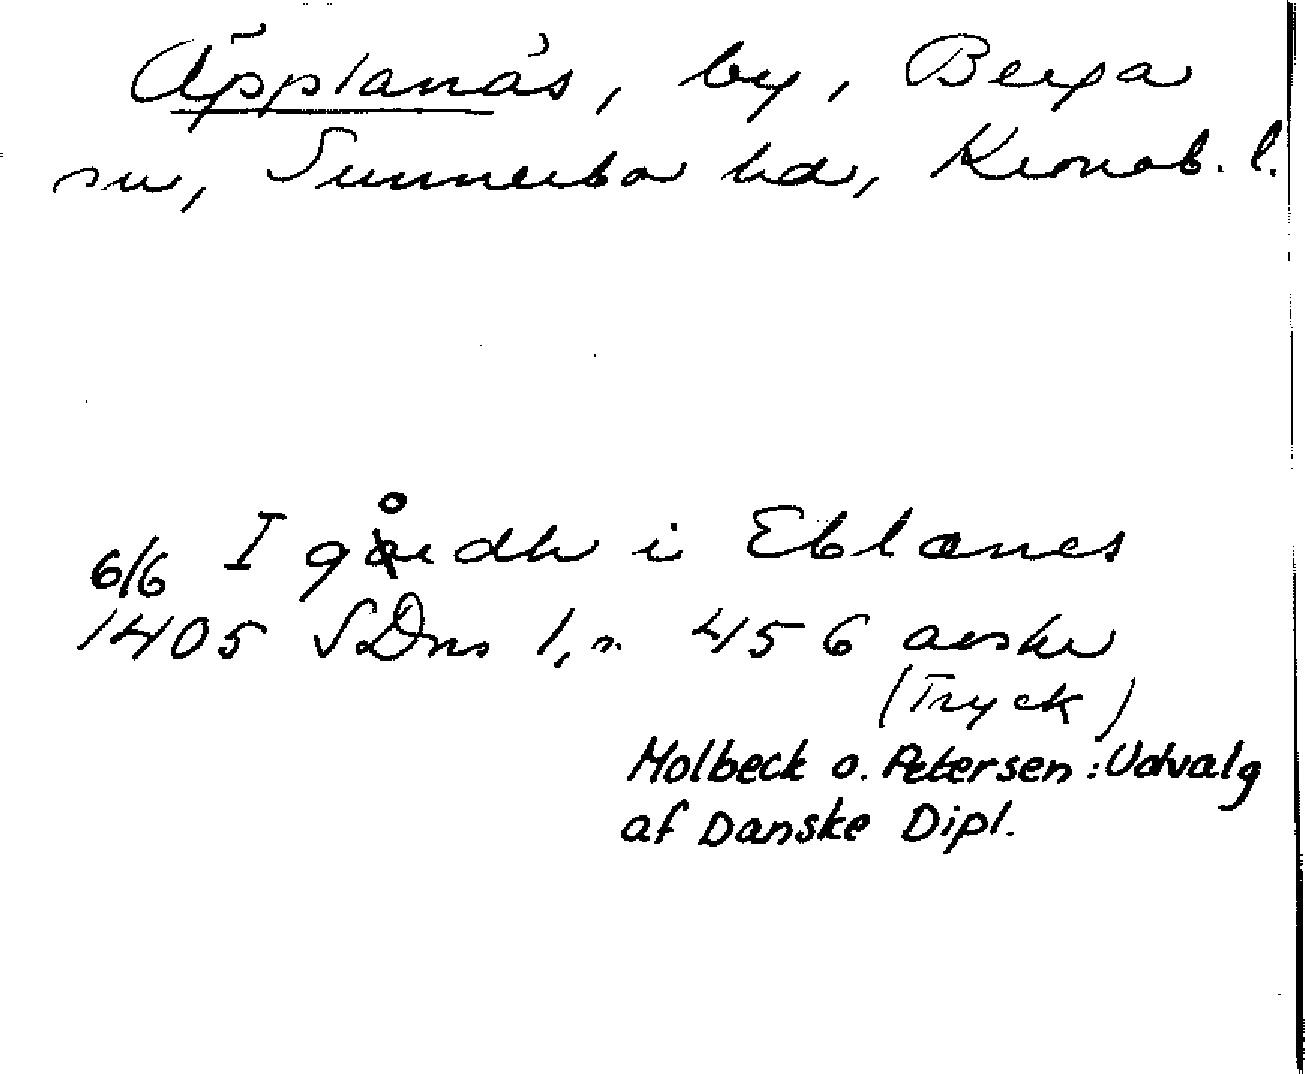 Äpplanäs, by, Berga
sn, Sunnerbo hd, Kronob. l.
I gårdh i Eblanes
6/6
1405 SDns 1, n. 456 avskr
(Tryck)
Molbeck o. Petersen: Udvalg
af Danske Dipl.